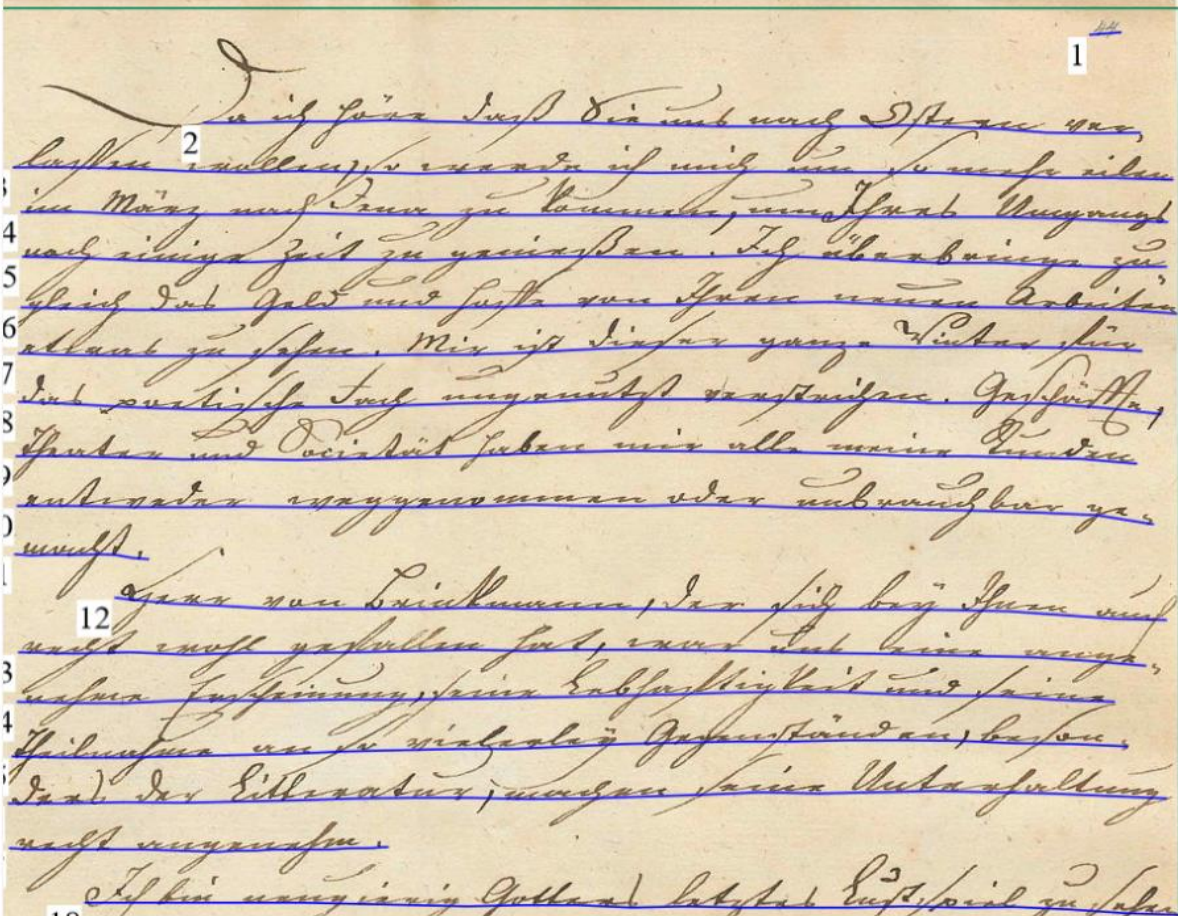 44
1
Da ich höre daß Sie uns nach Ostern ver-
2
lassen wollen, so werde ich mich um so mehr eilen
3
im März nach Jena zu kommen, um Ihres Umgangs
4
noch einige Zeit zu genießen. Ich überbringe zu-
5
gleich das Geld und hoffe von Ihren neuen Arbeiten
6
etwas zu sehen. Mir ist dieser ganze Winter für
7
das poetische Fach ungenutzt verstrichen. Geschäffte,
8
Theater und Societät haben mir alle meine Stunden
9
entweder weggenommen oder unbrauchbar ge-
0
macht.
1
Herr von Brinkmann, der sich bey Ihnen auch
12
recht wohl gefallen hat, war uns eine ange-
3
nehme Erscheinung, seine Lebhafftigkeit und seine
4
Theilnahme an so vielerley Gegenständen, beson-
5
ders der Litteratur, machen seine Unterhaltung
recht angenehm.
Ich bin neugierig Gotters letztes Lustspiel zu sehen
18